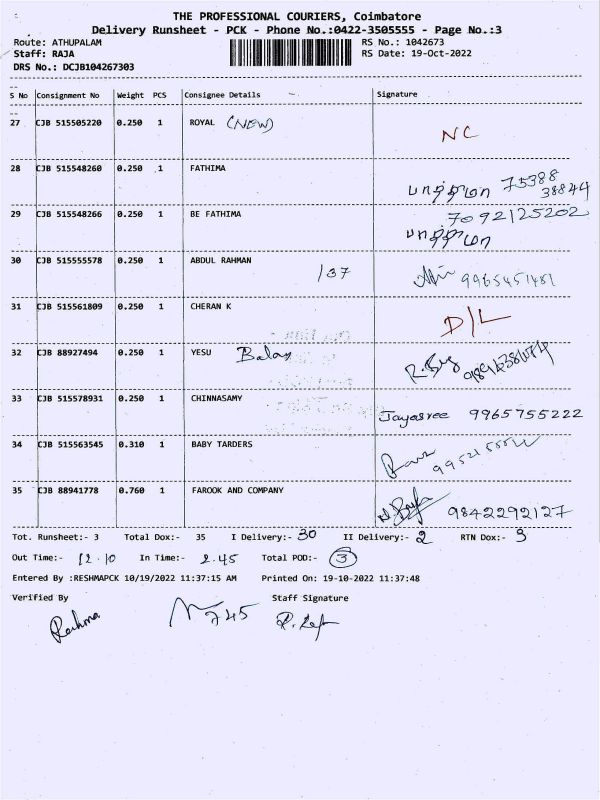 THE PROFESSIONAL COURIERS, Coimbatore
Delivery Runsheet - PCK - Phone No.:0422-3505555 - Page No.:3
Route: ATHUPALAM RS No.: 1042673
Staff: RAJA RS Date: 19-Oct-2022
DRS No.: DCJB104267303
S No Consignment No Weight PCS Consignee Details Signature
27 CJB 515505220 0.250 1 ROYAL (NEW) NC
28 CJB 515548260 0.250 1 FATHIMA 75388
38844
29 CJB 515548266 0.250 1 BE FATHIMA 7092125202
30 CJB 515555578 0.250 1 ABDUL RAHMAN
137 9965451481
31 CJB 515561809 0.250 1 CHERAN K D/L
32 CJB 88927494 0.250 1 YESU Balan
33 CJB 515578931 0.250 1 CHINNASAMY
Jayasree 9965755222
34 CJB 515563545 0.310 1 BABY TARDERS
35 CJB 88941778 0.760 1 FAROOK AND COMPANY
9842292127
Tot. Runsheet:- 3 Total Dox:- 35 I Delivery:- 30 II Delivery:- 2 RTN Dox:- 3
Out Time:- 12.10 In Time:- 2.45 Total POD:- 3
Entered By :RESHMAPCK 10/19/2022 11:37:15 AM Printed On: 19-10-2022 11:37:48
Verified By Staff Signature
745